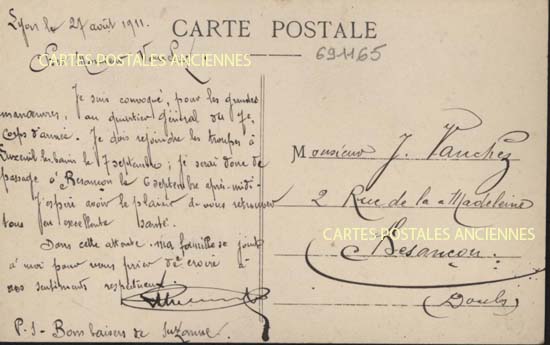 Lyon le 27 août 1911.
CARTE POSTALE
691165
CARTES POSTALES ANCIENNES
Je suis convoqué, pour les grandes
manœuvres, au quartier général du 7e
Corps d'armée. Je dois rejoindre les troupes à
Luxeuil les bains le 7 septembre ; je serai donc de
passage à Besançon le 6 septembre après-midi.
J'espère avoir le plaisir de vous retrouver
tous en excellente santé.
Dans cette attente, ma famille se joint
à moi pour vous prier de croire à
nos sentiments respectueux.
P.S. Bons baisers de Suzanne.
Monsieur J. Vanchez
2 Rue de la Madeleine
CARTES POSTALES ANCIENNES
Besançon.
Doubs